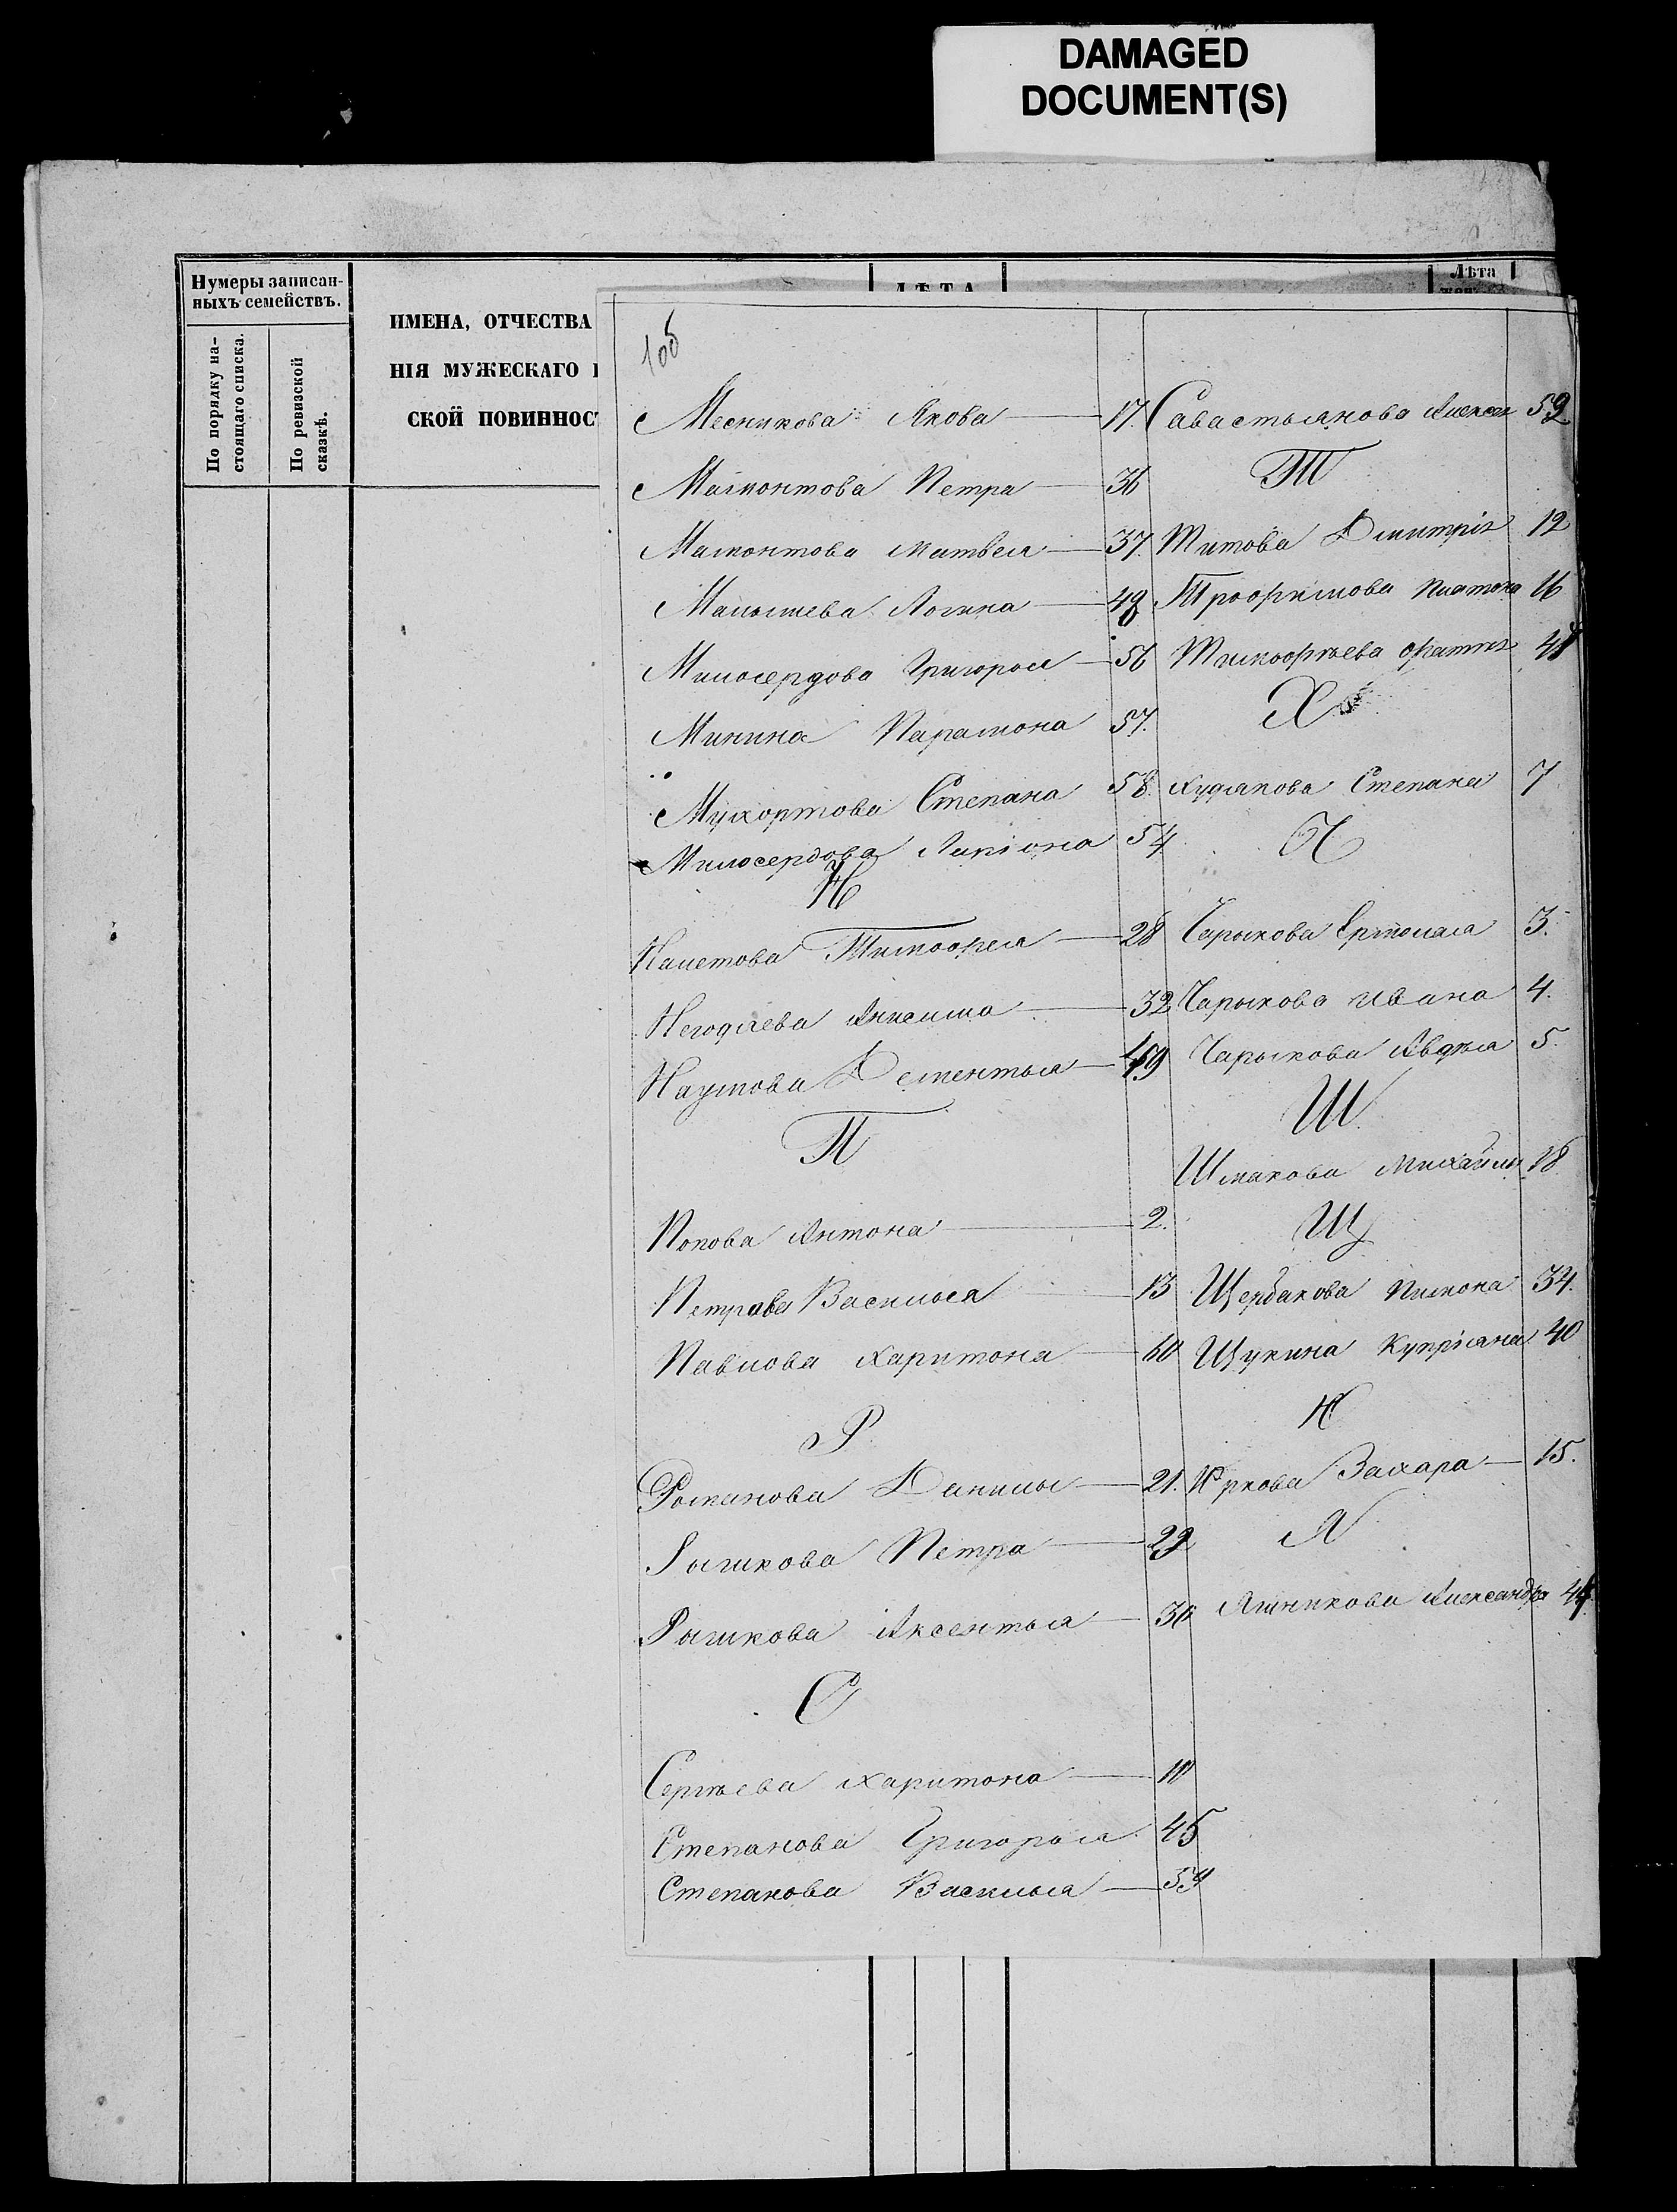 DAMAGED
DOCUMENT(S)
Нумеры записан-
ныхъ семействъ.
По порядку на-
стоящаго списка.
По ревизской
сказкѣ.
ИМЕНА, ОТЧЕСТВА
НІЯ МУЖЕСКАГО
СКОЙ ПОВИННОС
ЛѢТА
Лѣта
Месникова Якова 17.
Мамонтова Петра 36
Мамонтова Матвея 37.
Малышева Логина
Милосердова Григорья 56
Минина Парамона 57.
Мухортова Степана 58.
Милосердова Ларіона 54
Н
Наметова Тимофея 28
Негодяева Анисима 32
Наумова Дементья 49
П
Попова Антона 2.
Петрова Василья 13
Павлова Харитона 60
Р
Романова Данилы 21.
Рышкова Петра 29
Рышкова Аксентья 30
С
Сергѣева Харитона
Степанова Григорья 45
Степанова Василья 59
Савастьянова Алексея
Т
Титова Дмитрія 12
Трофимова Платона 16
Тимофѣева
Х
Худякова Степана 7
Ч
Чарыкова Ермолая 3.
Чарыкова Ивана 4.
Чарыкова Авдѣя 5.
Ш
Шмакова Михайлы 18.
Щ
Щербакова Пимона 34.
Щукина Купріяна 40
Ю
Юркова Захара 15.
Я
Яшникова Александра